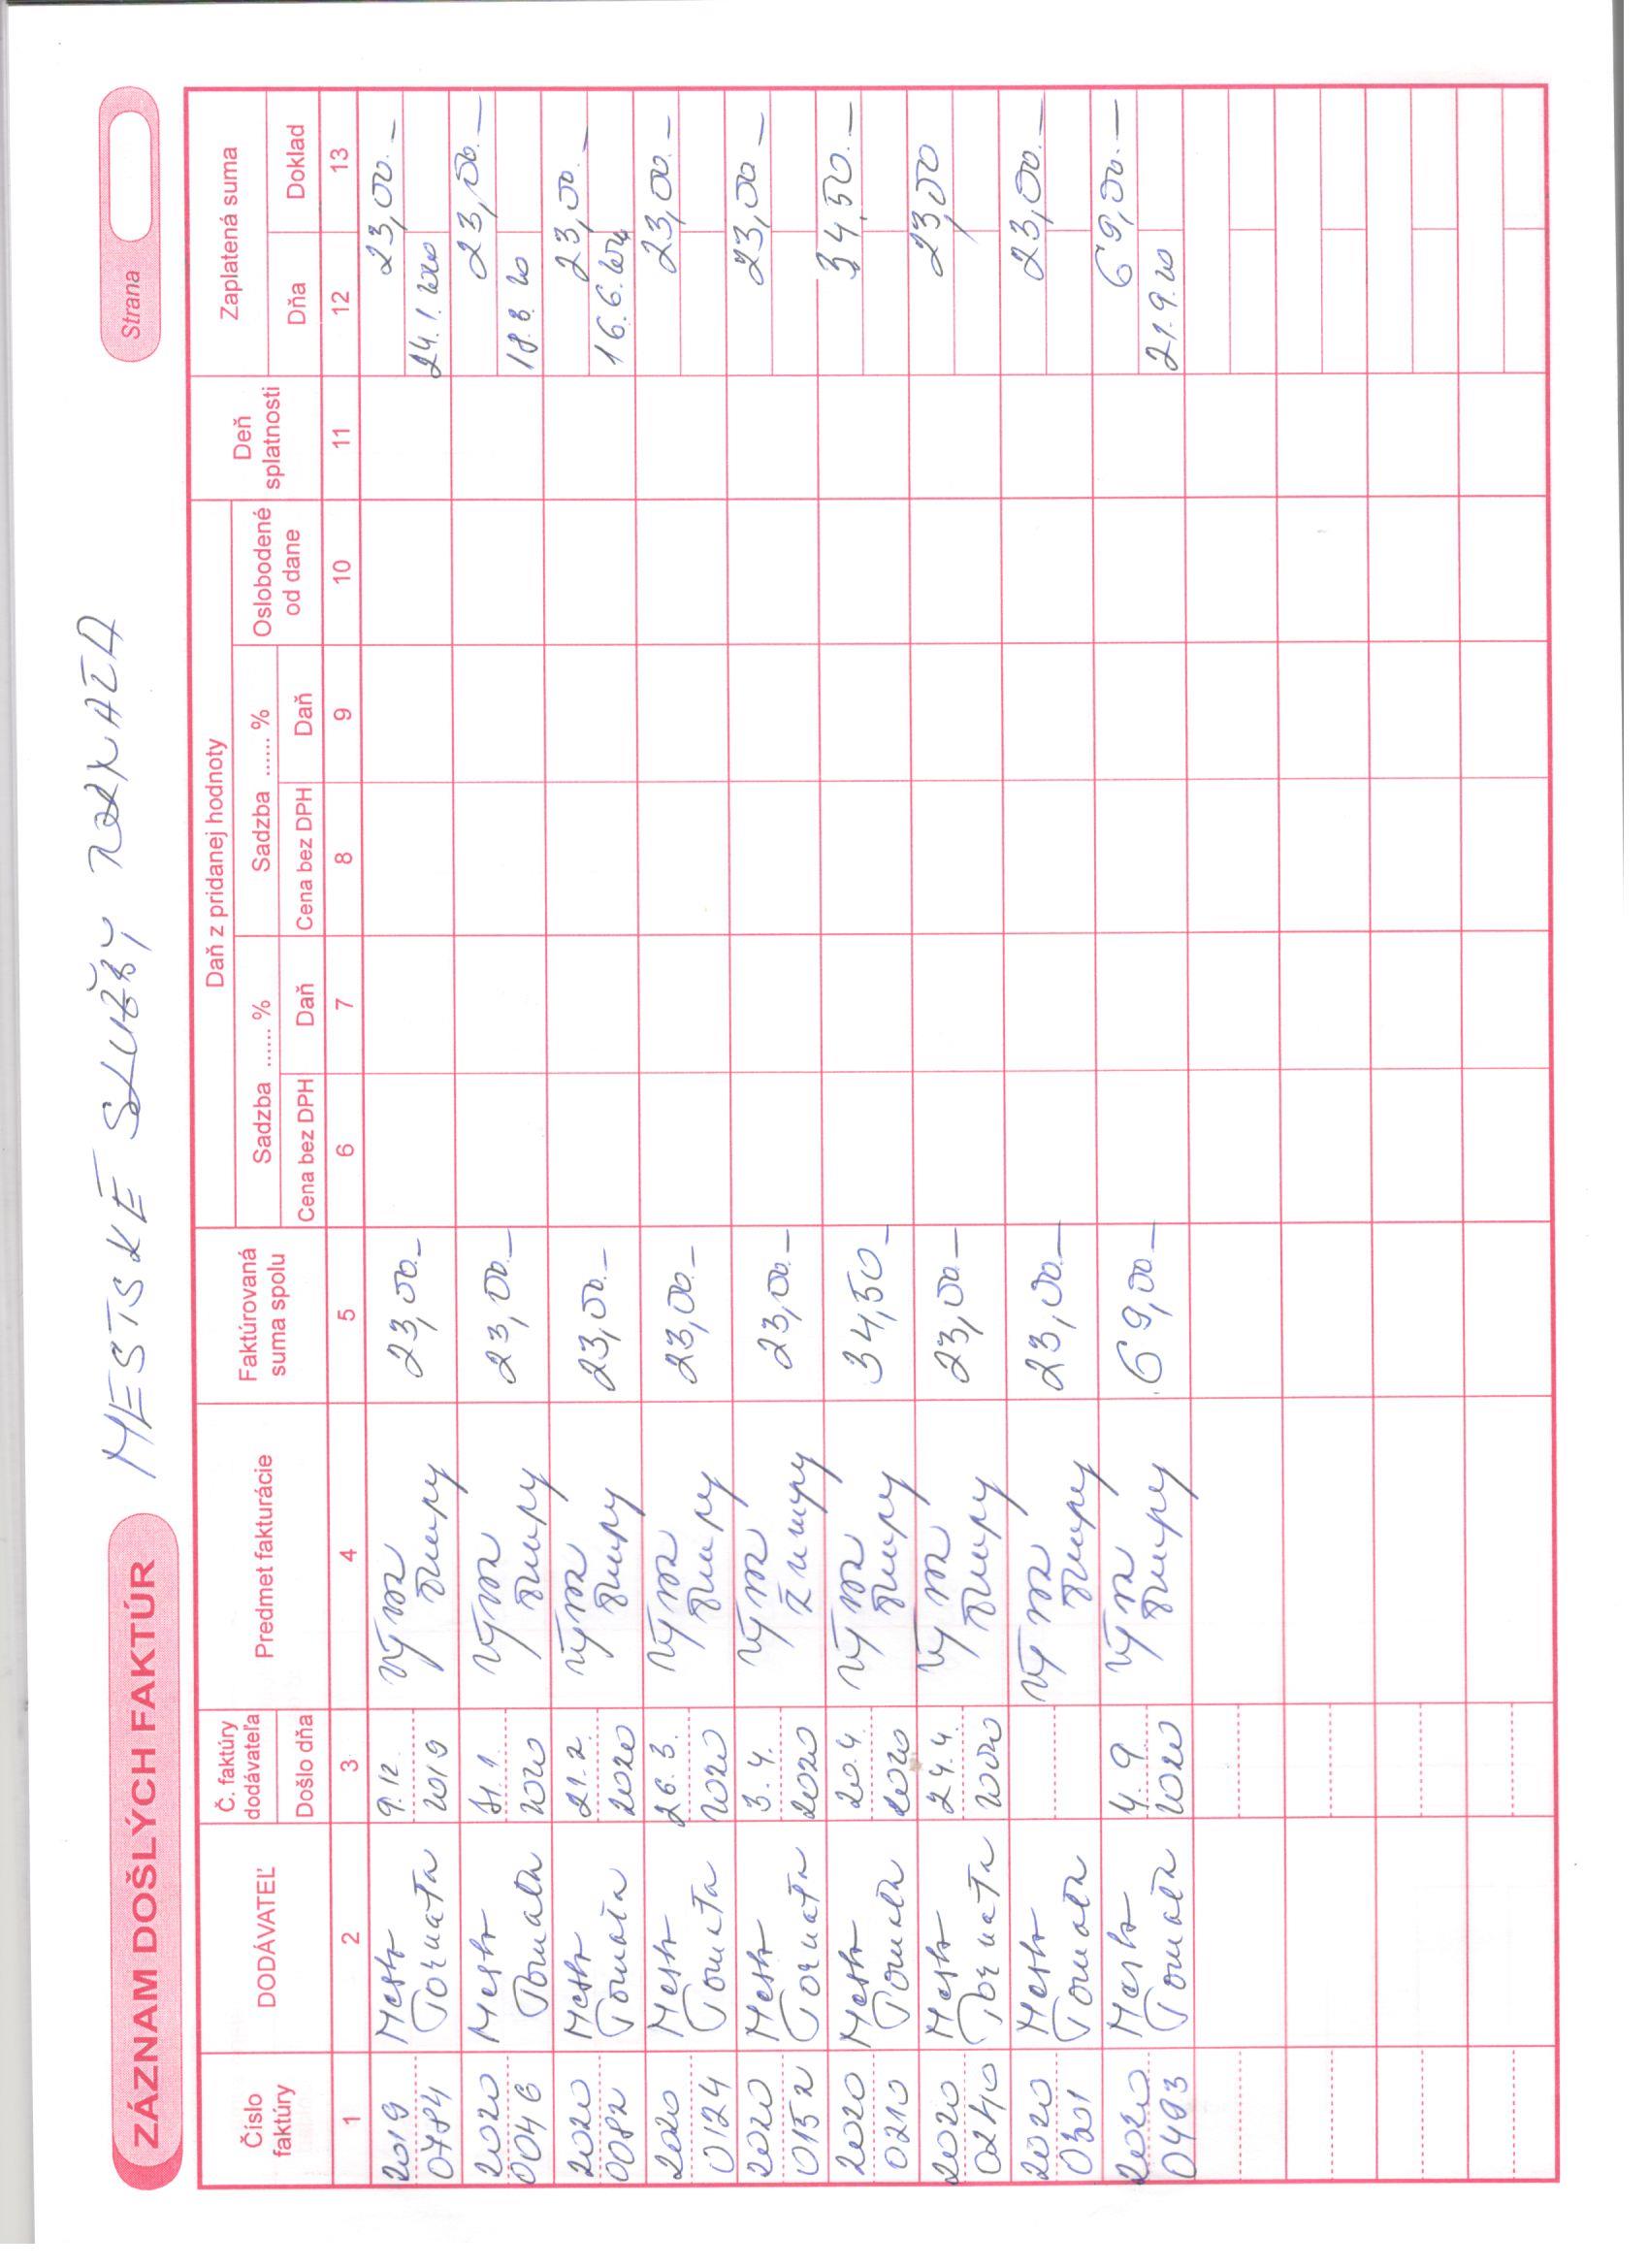 ZÁZNAM DOŠLÝCH FAKTÚR MESTSKÉ SLUŽBY Strana
Číslo faktúry DODÁVATEĽ Č. faktúry dodávateľa Došlo dňa Predmet fakturácie Faktúrovaná suma spolu Daň z pridanej hodnoty Deň splatnosti Zaplatená suma
Sadzba ...... % Sadzba ...... % Oslobodené od dane
Cena bez DPH Daň Cena bez DPH Daň Dňa Doklad
1 2 3 4 5 6 7 8 9 10 11 12 13
2019 Mesto 9.12. 23,00.- 23,00.-
0784 Tornaľa 2019 žumpy 24.1.2020
2020 Mesto 1. 23,00.- 23,00.-
0046 Tornaľa 2020 žumpy 18.3.20
2020 Mesto 21.2. 23,00.- 23,00.-
0082 Tornaľa 2020 žumpy 16.6.
2020 Mesto 26.3. 23,00.- 23,00.-
0124 Tornaľa 2020 žumpy
2020 Mesto 3.4. 23,00.- 23,00.-
0152 Tornaľa 2020 žumpy
2020 Mesto 20.4. 34,50.- 34,50.-
0210 Tornaľa 2020 žumpy
2020 Mesto 24.4. 23,00.- 23,00
0240 Tornaľa 2020 žumpy
2020 Mesto 23,00.- 23,00.-
0301 Tornaľa žumpy
2020 Mesto 4.9 69,00.- 69,00.-
0493 Tornaľa 2020 žumpy 21.9.20